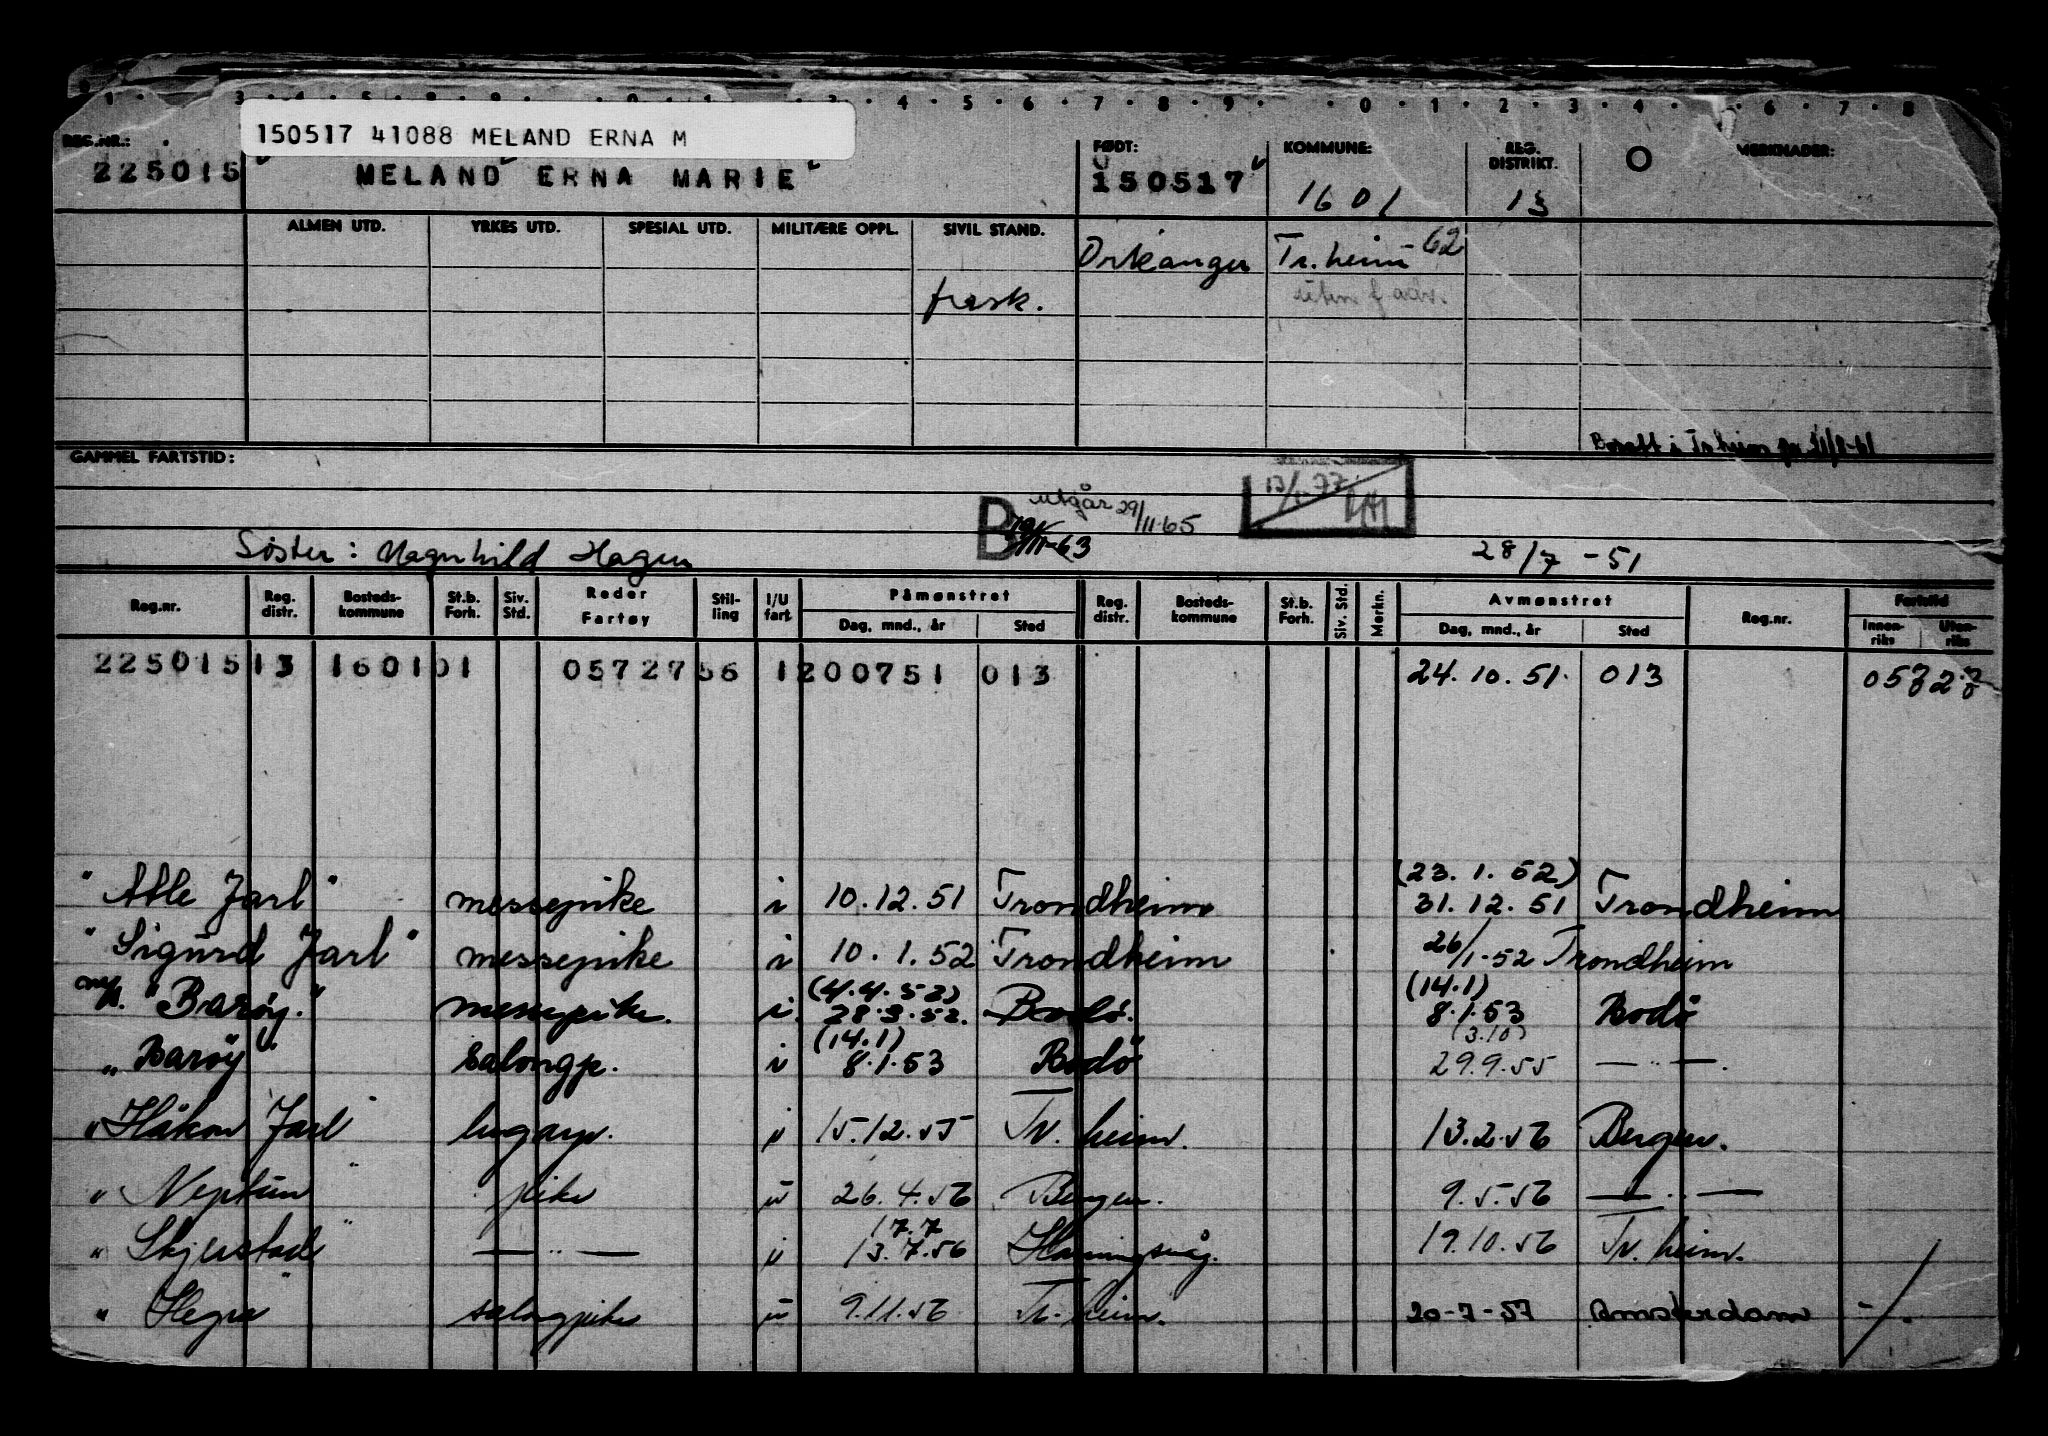 1 3 4 5 6 7 8 9 0 1 2 3 4 6 7 8
150517 41088 MELAND ERNA M
REG.NR.: FØDT: KOMMUNE: REG. DISTRIKT. O MERKNADER:
225015 MELAND ERNA MARIE 150517 1601 13
ALMEN UTD. YRKES UTD. SPESIAL UTD. MILITÆRE OPPL. SIVIL STAND. Orkanger Tr.heim 62
frask.
Bosatt i Tr.heim
GAMMEL FARTSTID:
B utgår 29/11-65 13/1-77
Søster: Magnhild Hagen 28/7-51
Reg.nr. Reg. distr. Bosteds-kommune St.b. Forh. Siv. Std. Reder Fartøy Stil-ling I/U fart. Påmønstret Reg. distr. Bosteds-kommune St.b. Forh. Siv. Std. Merkn. Avmønstret Reg.nr. Fartstid
Dag, mnd., år Sted Dag, mnd., år Sted Innen-riks Uten-riks
225015 13 1601 01 05727 56 1 200751 013 24.10.51. 013
(23.1.52)
"Atle Jarl" messepike i 10.12.51 Trondheim 31.12.51 Trondheim
"Sigurd Jarl" messepike i 10.1.52 Trondheim 26/1-52 Trondheim
(4.4.52) (14.1)
"Barøy." messepike. i. 28.3.52. Bodø. 8.1.53 Bodö
(14.1) (3.10)
"Baröy" salongp. i 8.1.53 Bodö 29.9.55 — " —.
"Håkon Jarl" lugarp. i 15.12.55 Tr.heim. 13.2.56 Bergen.
"Neptun" pike u 26.4.56 Bergen. 9.5.56 — " —
17.7
"Skjerstad" — " — i 13.7.56 Honningsvåg. 19.10.56 Tr.heim.
"Hegra" salongpike u 9.11.56 Tr.heim. 20-7-57 Amsterdam